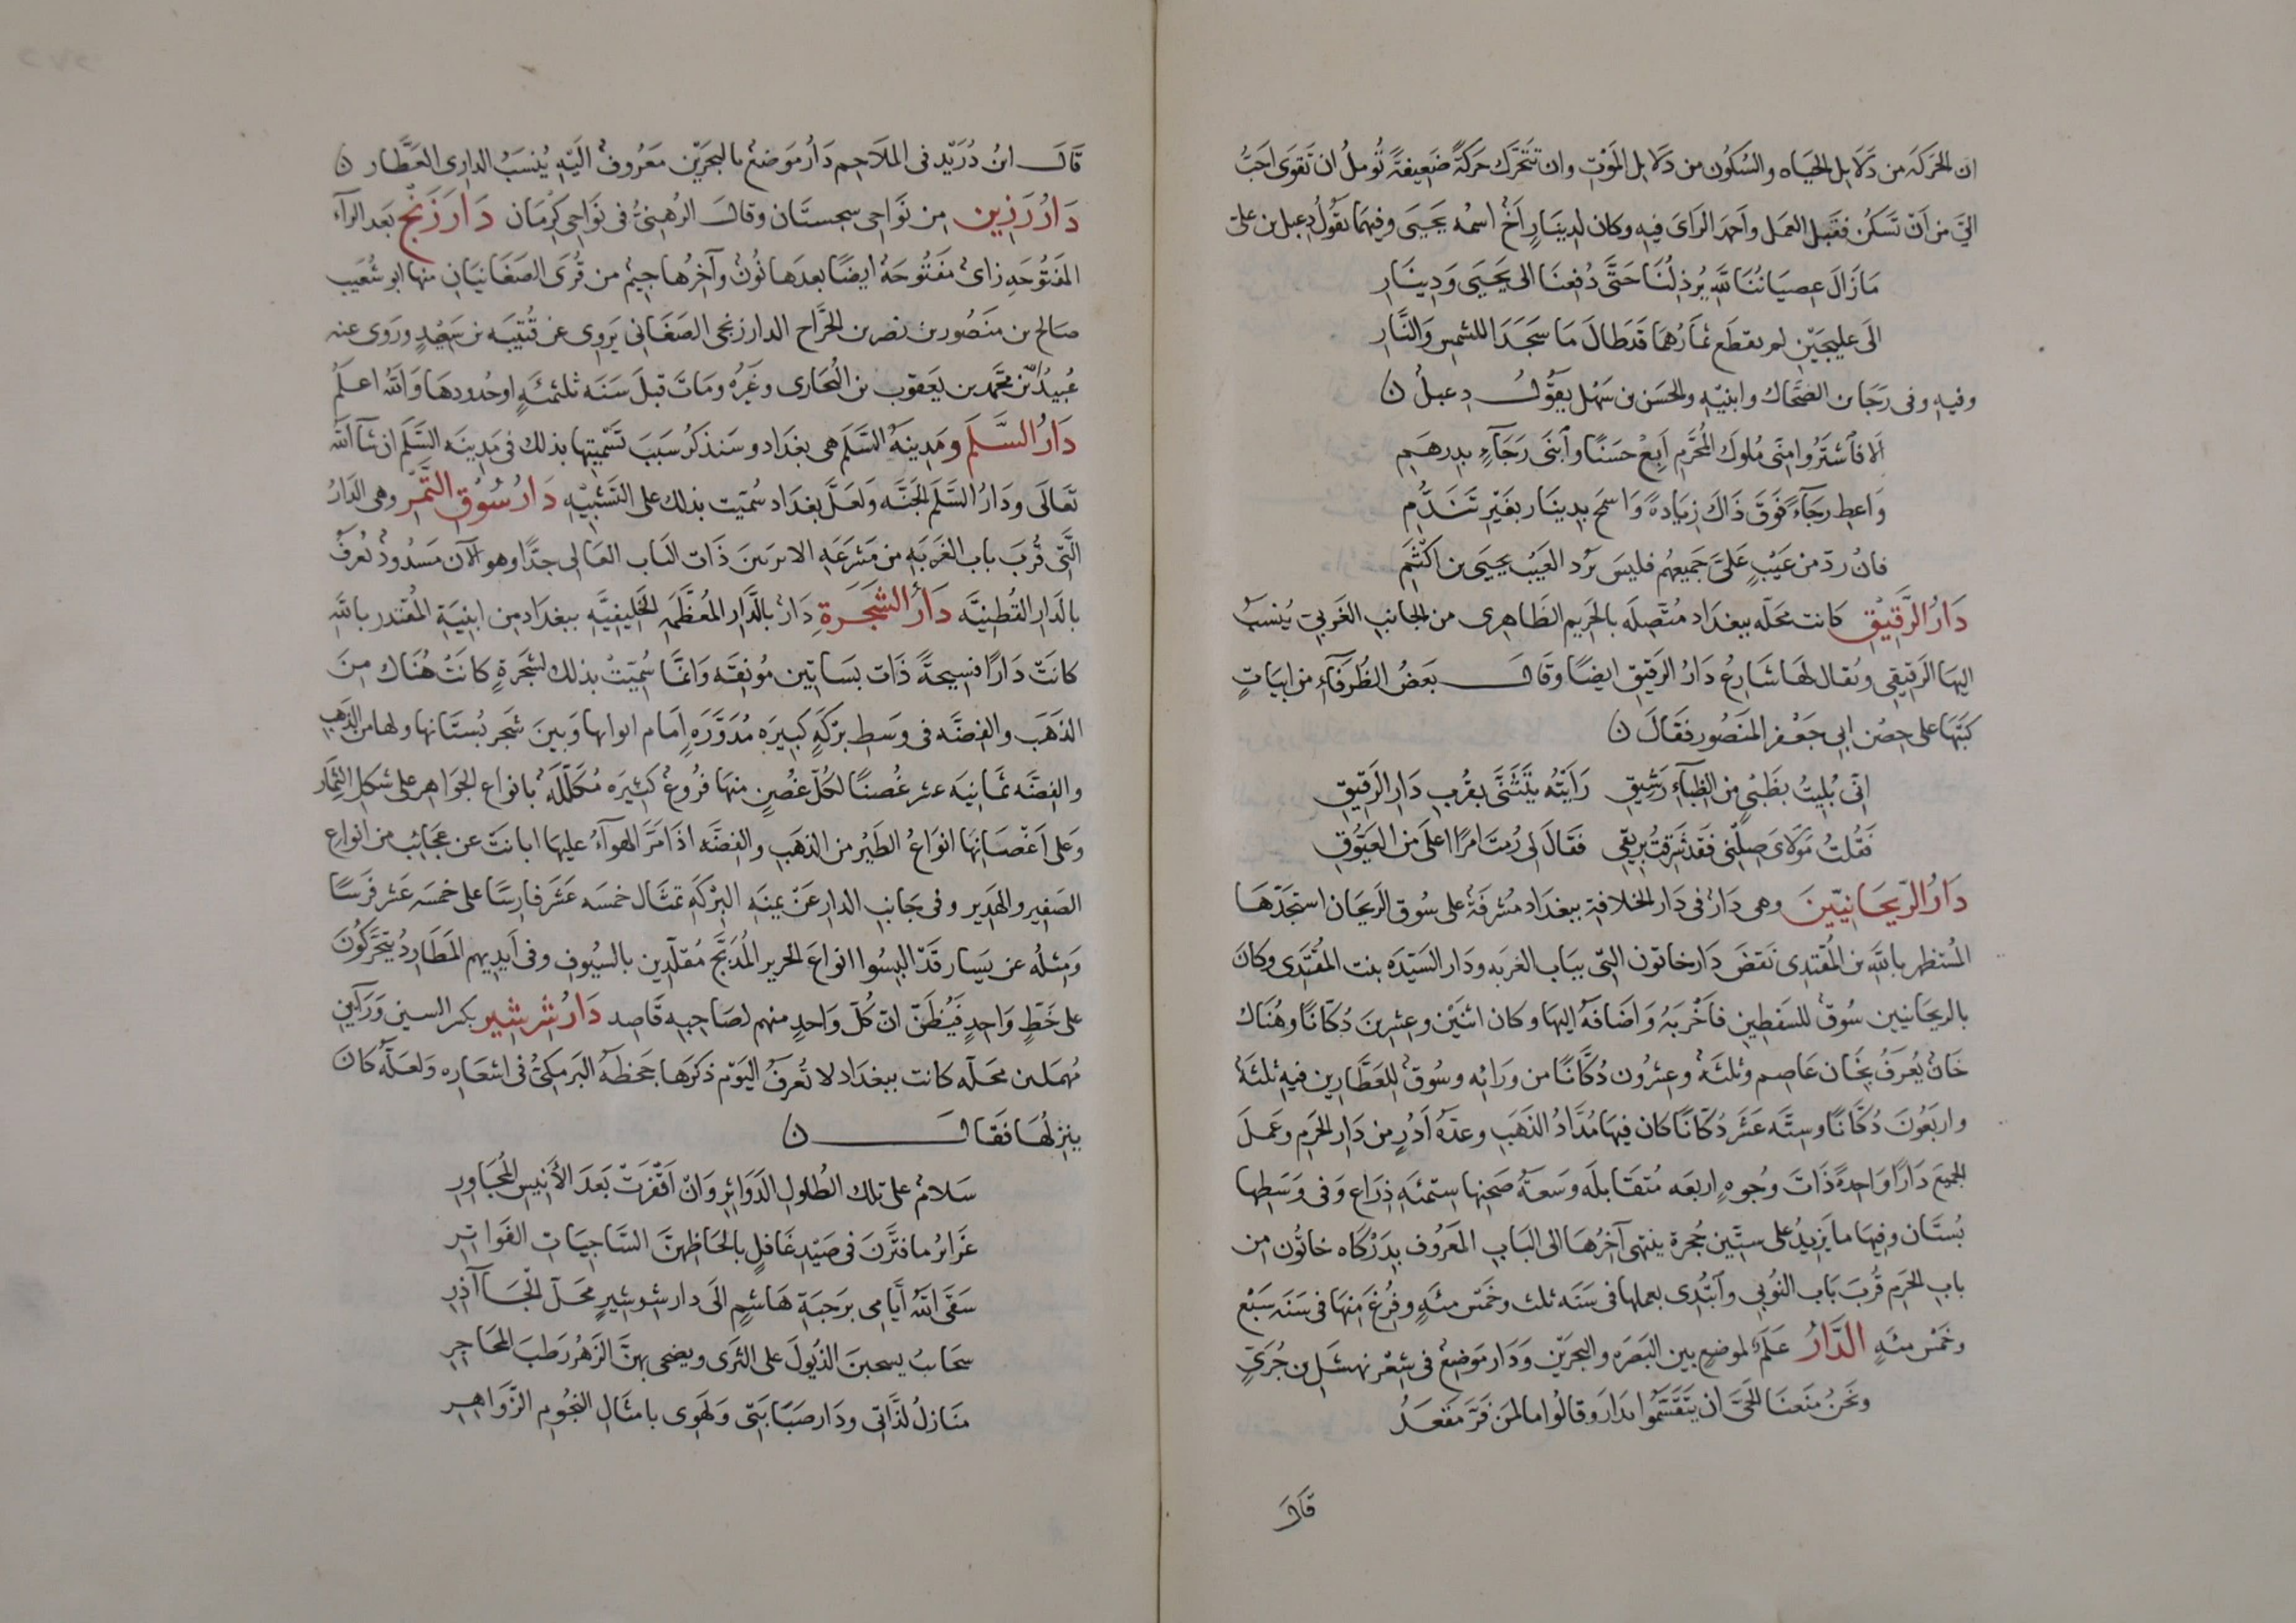 ان الحَركَة من دَلَايل الحيَاه والسُكُون من دَلَايل المَوْتِ وان تتحَرَّك حَركَةً ضَعِيفَةً تُومل ان تَقوَى احَبُّ
اليَّ من اَنّ تَسكُن فقَبِلَ العمَل واَحمَد الرَاىَ فيه وكان لدِينَارٍ اَخ اسمُه يَحيَى وفيهمَا يقوُلُ دِعبل بن على
مَازَالَ عِصيَانُنَا للَّهِ يُرذِلُنَا حَتَّى دُفِعنَا الى يَحيَى وَدِينَارِ
الَى عليجَيْنِ لم يقطَع ثمَارُهمَا قَدطَالَ مَا سَجَدَا للشمسِ وَالنَّارِ
وفيهِ وفى رَجَا بن الضحَّاك وابنيْهِ والحسَن بن سَهْل يقوُلُ دِعبلُ ن
اَلا فاَشتَرُوا مِنّى مُلوك المُحَرَّمِ اَبِعْ حَسَنًا وَاَبنَى رَجَآءٍ بدِرهَمِ
وَاعطِ رجَآءً فَوَقَ ذَاكَ زيَادةً وَاسمَح بدِينَار بغَيْرِ تَنَدُّمِ
فان ردّ من عَيْبٍ عَلىَّ جَميعهُم فليسَ يَرُد العَيْبَ يحيَى بن اَكثَمِ
دَارُ الرَّقِيْقِ كانت محَلّه ببغدَاد مُتَّصِلَه بالحَريم الطَاهِرى من الجَانبِ الغَربىّ يُنسَبُ
اليهَا الرَقِيقِى ويُقال لهَا شَارِعُ دَارُ الرَقيْقِ ايضًا وقَالَ بعَضُ الظُرَفآءِ من ابيَاتٍ
كَتبَهَا على حِصْن ابى جَعْفر المَنصُور فقَالَ ن
انّى بُلِيتُ بظَبْىٍ من الظِبَآءِ رَشِيْقِ رَاَيْتُه يَتَثَنّى بقُربِ دَارِ الرَقِيْقِ
فَقُلتُ مَولَاىَ صِلْنى فقَد شَرِقتُ برِيقى فقَالَ لى رُمتَ امرًا اعلَى منَ العَيُّوقِ
دَارُ الرّيحَانيّيْنَ وهى دَارٌ فى دَار الخلافةِ ببغدَاد مُشرفَةٌ على سُوق الريحَان استجَدّهَا
المُستظهر بالله بن المُقتدِى نَقضَ دَار خاتون التى ببَاب الغربه ودَار السَيّدَه بنت المُقتَدى وكان
بالريحَانيين سُوقٌ للسَفطِين فاَخْربَهُ وَاضَافَهُ اليهَا وكان اثنَيْن وعِشرِينَ دُكّانًا وهُنَاك
خَانٌ يُعرَفُ بخَان عَاصِم وثلثَةٌ وعِشرُون دُكَّانًا من وَرَائِه وسُوقٌ للعَطَّارِين فيهِ ثلثَةٌ
واربَعُونَ دُكَّانًا وسِتَّه عشَر دُكّانًا كان فيهَا مُدَّادُ الذَهَب وعدّهُ اَدُرٍ من دَارِ الحرَمِ وعَملَ
الجميَع دَارًا وَاحدةً ذَاتَ وجُوهٍ اربعَه مُتقَابلَه وَسعَةُ صَحنِهَا سِتّمئَهِ ذِرَاع وَفى وسَطِها
بُستَان وفيهَا مَا يَزيدُ على سِتّين حُجرة ينتهى آخِرُهَا الى البَابِ المَعرُوف بِدَرْكَاه خاتُون من
بابِ الحَرَم قُربَ بَاب النُوبى وَاَبتُدِى بعملهَا فى سَنَه ثلث وخَمْس مئةٍ وفُرغَ مِنهَا فى سَنَه سَبْع
وخَمْس مئةٍ الدَّارُ عَلَمٌ لموضعٍ بين البَصَره والبحرَيْن وَدَار مَوضعٌ فى شِعْر نهشَل بن جُرَىٍّ
ونَحنُ مَنَعنَا الحَىَّ ان يَتقَسَّمُوا بدَارَ وقالُوا ما لمن فَرَّ مَقعَدُ
قَالَ
قَالَ ابنُ دُرَيْد فى الملَاحِم دَارُ مَوضعٌ بالبحرَيْن مَعْرُوفٌ الَيْهِ يُنسَبُ الدارى العَطَّار ن
دَارُ رَزِين مِن نَوَاحِى سجستَان وقالَ الرُهنىُّ فى نَوَاحِى كِرْمَان دَارَزَنْج بعَد الرآءِ
المَفتُوحَه زاىٌ مَفتُوحَةٌ ايضًا بعدَهَا نُونٌ وآخِرُهَا جيمٌ من قُرَى الصَغَانيَان منهَا ابو شُعَيب
صَالح بن منصُور بن نصر بن الجَرَّاح الدارزنجى الصَغَانى يَروى عن قُتيْبَه بن سَعِيْدٍ ورَوى عنه
عُبيدُ الله بن محَمَّد بن يعقوب بن البُخارى وغَيْرُه ومَاتَ قبلَ سَنَه ثلثمئَةٍ اوحُدودِهَا وَالله اعلَمُ
دَارُ السَّلَم ومَدِينَهُ السَّلَم هى بغدَاد وسَنذكَرُ سَببَ تَسْميَتِهَا بذلك فى مَدِينَه السَّلَم ان شآ الله
تعَالَى ودَارُ السَّلَم الجَنَّه وَلعَلَّ بغدَاد سُميّت بذلك على التَشبْيهِ دَارُ سُوقِ التَّمْر وهى الدَارُ
الَّتى قُربَ باب الغرَبَه من مَشرَعَه الابرىىنَ ذَات البَاب العَالى جدًّا وهو الآن مَسدُودٌ تُعرَفُ
بالدَار القُطنِيَّه دَارُ الشَّجَرَةِ دَارٌ بالدَّار المُعظَّمَهِ الخَليفيّهِ ببغدَاد من ابنيَةِ المُقتدر بالله
كانَتْ دَارًا فسِيحةً ذَات بسَاتِين مُونقَه وَانَّمَا سُمِّيَتْ بذلك لشَجَرَةٍ كانَتْ هُنَاك مِنَ
الذهَبَ والفِضّه فى وَسَطِ برْكَةٍ كَبِيرَه مُدَوَّرَه اِمَام ايوانهَا وَبينَ شَجر بُستَانها ولهَا من الذهَبِ
والفِضّه ثمَانيَه عشر غُصنًا لكُلّ غُصْنٍ منهَا فرُوعٌ كَثِيرَه مُكَلَّلَهٌ بانواع الجوَاهر على شَكل الثِمَار
وَعلى اَغصَانِهَا انوَاعُ الطَيْرُ من الذهَبِ والفِضّه اذَا مَرَّ الهَوآءُ عليهَا ابانَتْ عن عجَائِب من انوَاعِ
الصَفِير والهَدِير وفى جَانبِ الدارِ عَنْ يمينَه البِرْكَةِ تمثَال خمسَه عَشَر فارسًا على خمسَه عَشر فَرسًا
وَمثلُه عن يسَار قَدّ اُلبسُوا انوَاعَ الحَرير المُدبَّج مُقلّدِين بالسيُوفِ وفى اَيدِيهم المَطَارِدُ يتحَرّكُونَ
على خَطٍّ وَاحِدٍ فيُظَنّ انّ كُلّ وَاحِدٍ منهم لصَاحِبه قَاصِد دَارُ شِرْشِير بكسر السين وَرَآيْنِ
مُهملَين محَلّه كانت ببغدَاد لا تُعرفُ اليَوْم ذكرهَا جَحظَهُ البَرمَكىُّ فى اشعَارِه وَلعَلّهُ كانَ
ينزلُهَا فقَالَ ن
سَلامٌ على تلكَ الطُلولِ الدَوَائِرِ وَانْ اقْفَرَتْ بَعَدَ الأَنِيسِ المُجَاوِرِ
غَرَائرُ ما فترَّنَ فى صَيْدِ غَافلٍ بالحَاظِهنَّ السَاجِيَاتِ الفَوَاتِرِ
سَقَى اللهُ اَيَّامِى برَحبَةِ هَاشِمٍ الَى دار شِرشِيرٍ محَلّ الجَآذِرِ
سحَابُ يسحبنَ الذُيُولَ على الثرَى ويضحى بهنَّ الزهْرُ رَطبَ المحَاجِرِ
منَازلُ لذَّاتى ودَار صبَابَتى وَلهَوى بامثَالِ النجُومِ الزَّوَاهِرِ